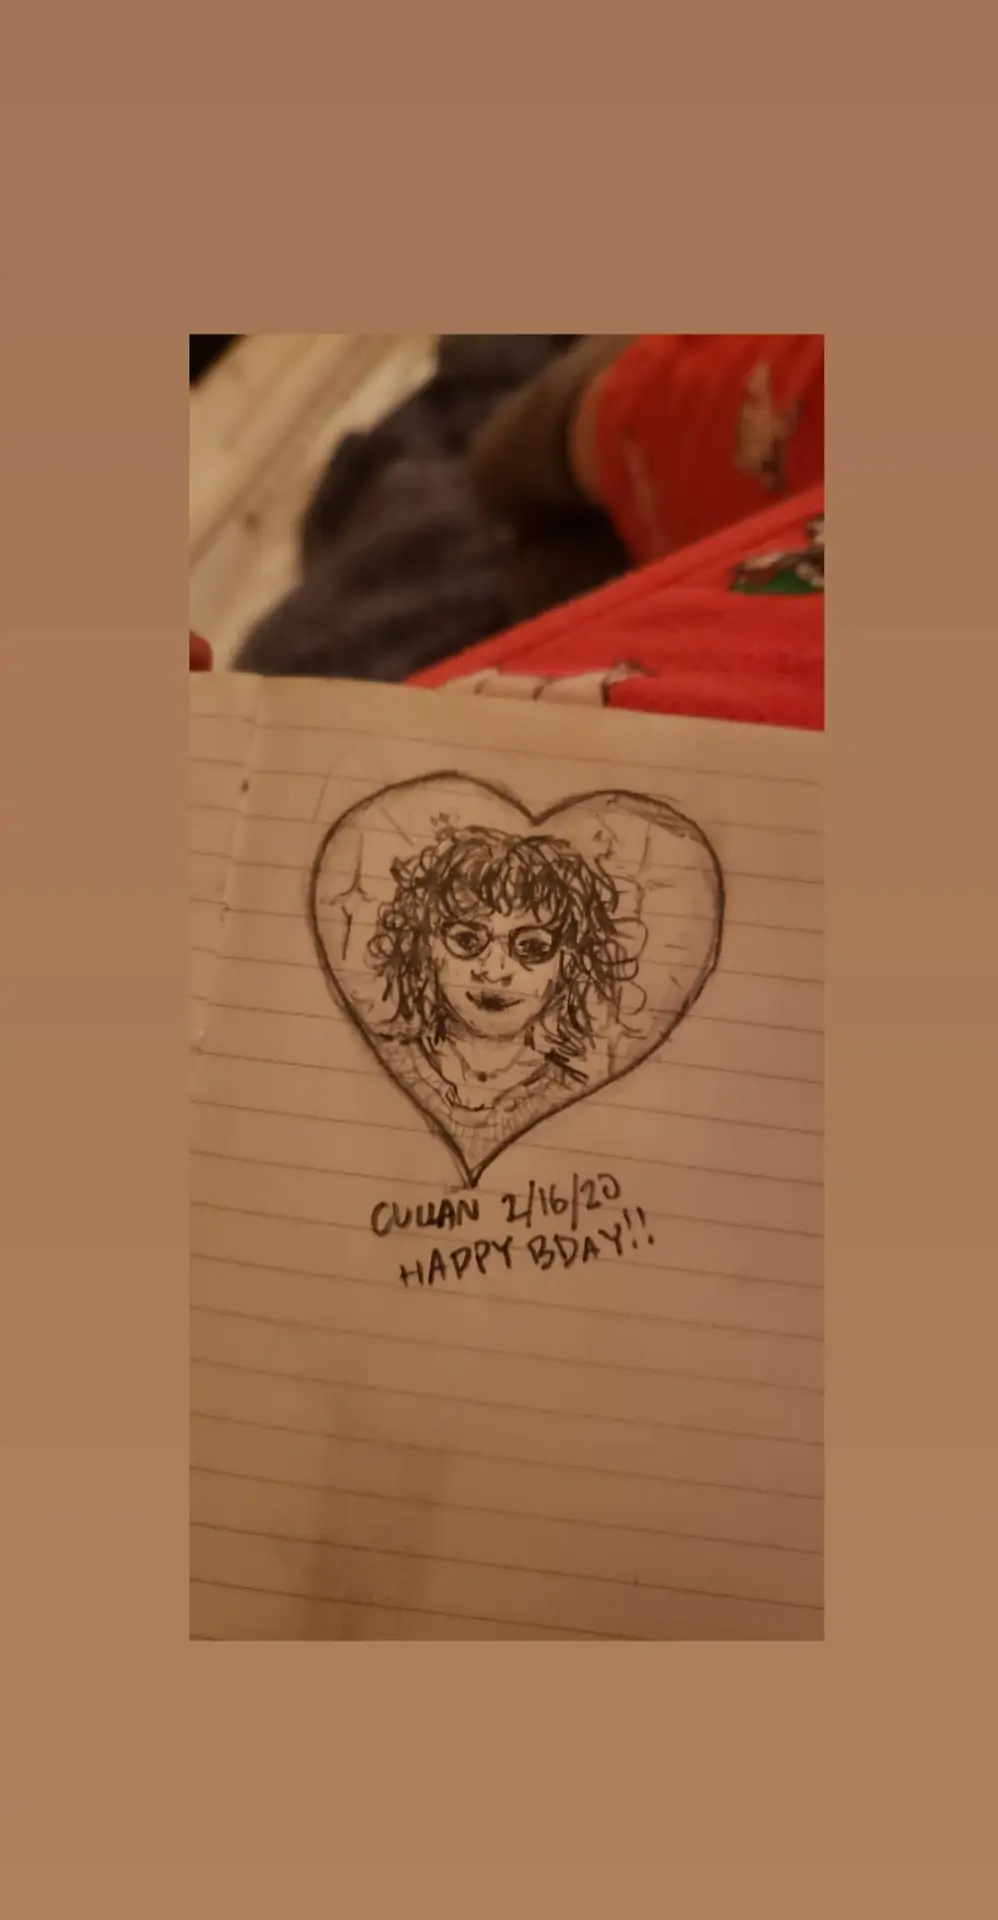 CULLAN 2/16/20
HAPPY BDAY!!